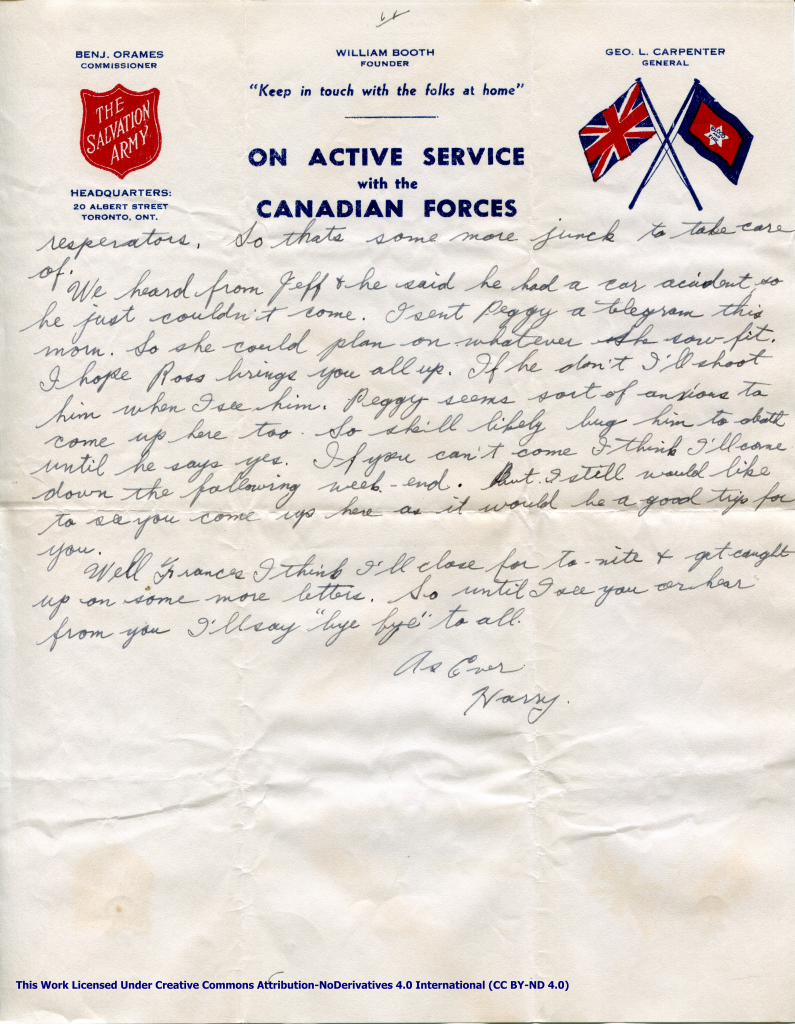 BENJ. ORAMES
COMMISSIONER
THE
SALVATION
ARMY
HEADQUARTERS:
20 ALBERT STREET
TORONTO, ONT.
WILLIAM BOOTH
FOUNDER
"Keep in touch with the folks at home"
ON ACTIVE SERVICE
with the
CANADIAN FORCES
GEO. L. CARPENTER
GENERAL
resperators. So thats some more junck to take care
of.
We heard from Jeff & he said he had a car acident, so
he just couldn't come. I sent Peggy a telegram this
morn. So she could plan on whatever sh saw fit.
I hope Ross brings you all up. If he don't I'll shoot
him when I see him. Peggy seems sort of anxious to
come up here too. So she'll likely bug him to death
until he says yes. If you can't come I think I'll come
down the following week-end. But I still would like
to see you come up here as it would be a good trip for
you.
Well Frances I think I'll close for to-nite & get caught
up on some more letters. So until I see you or hear
from you I'll say "bye bye" to all.
As Ever
Harry.
This Work Licensed Under Creative Commons Attribution-NoDerivatives 4.0 International (CC BY-ND 4.0)